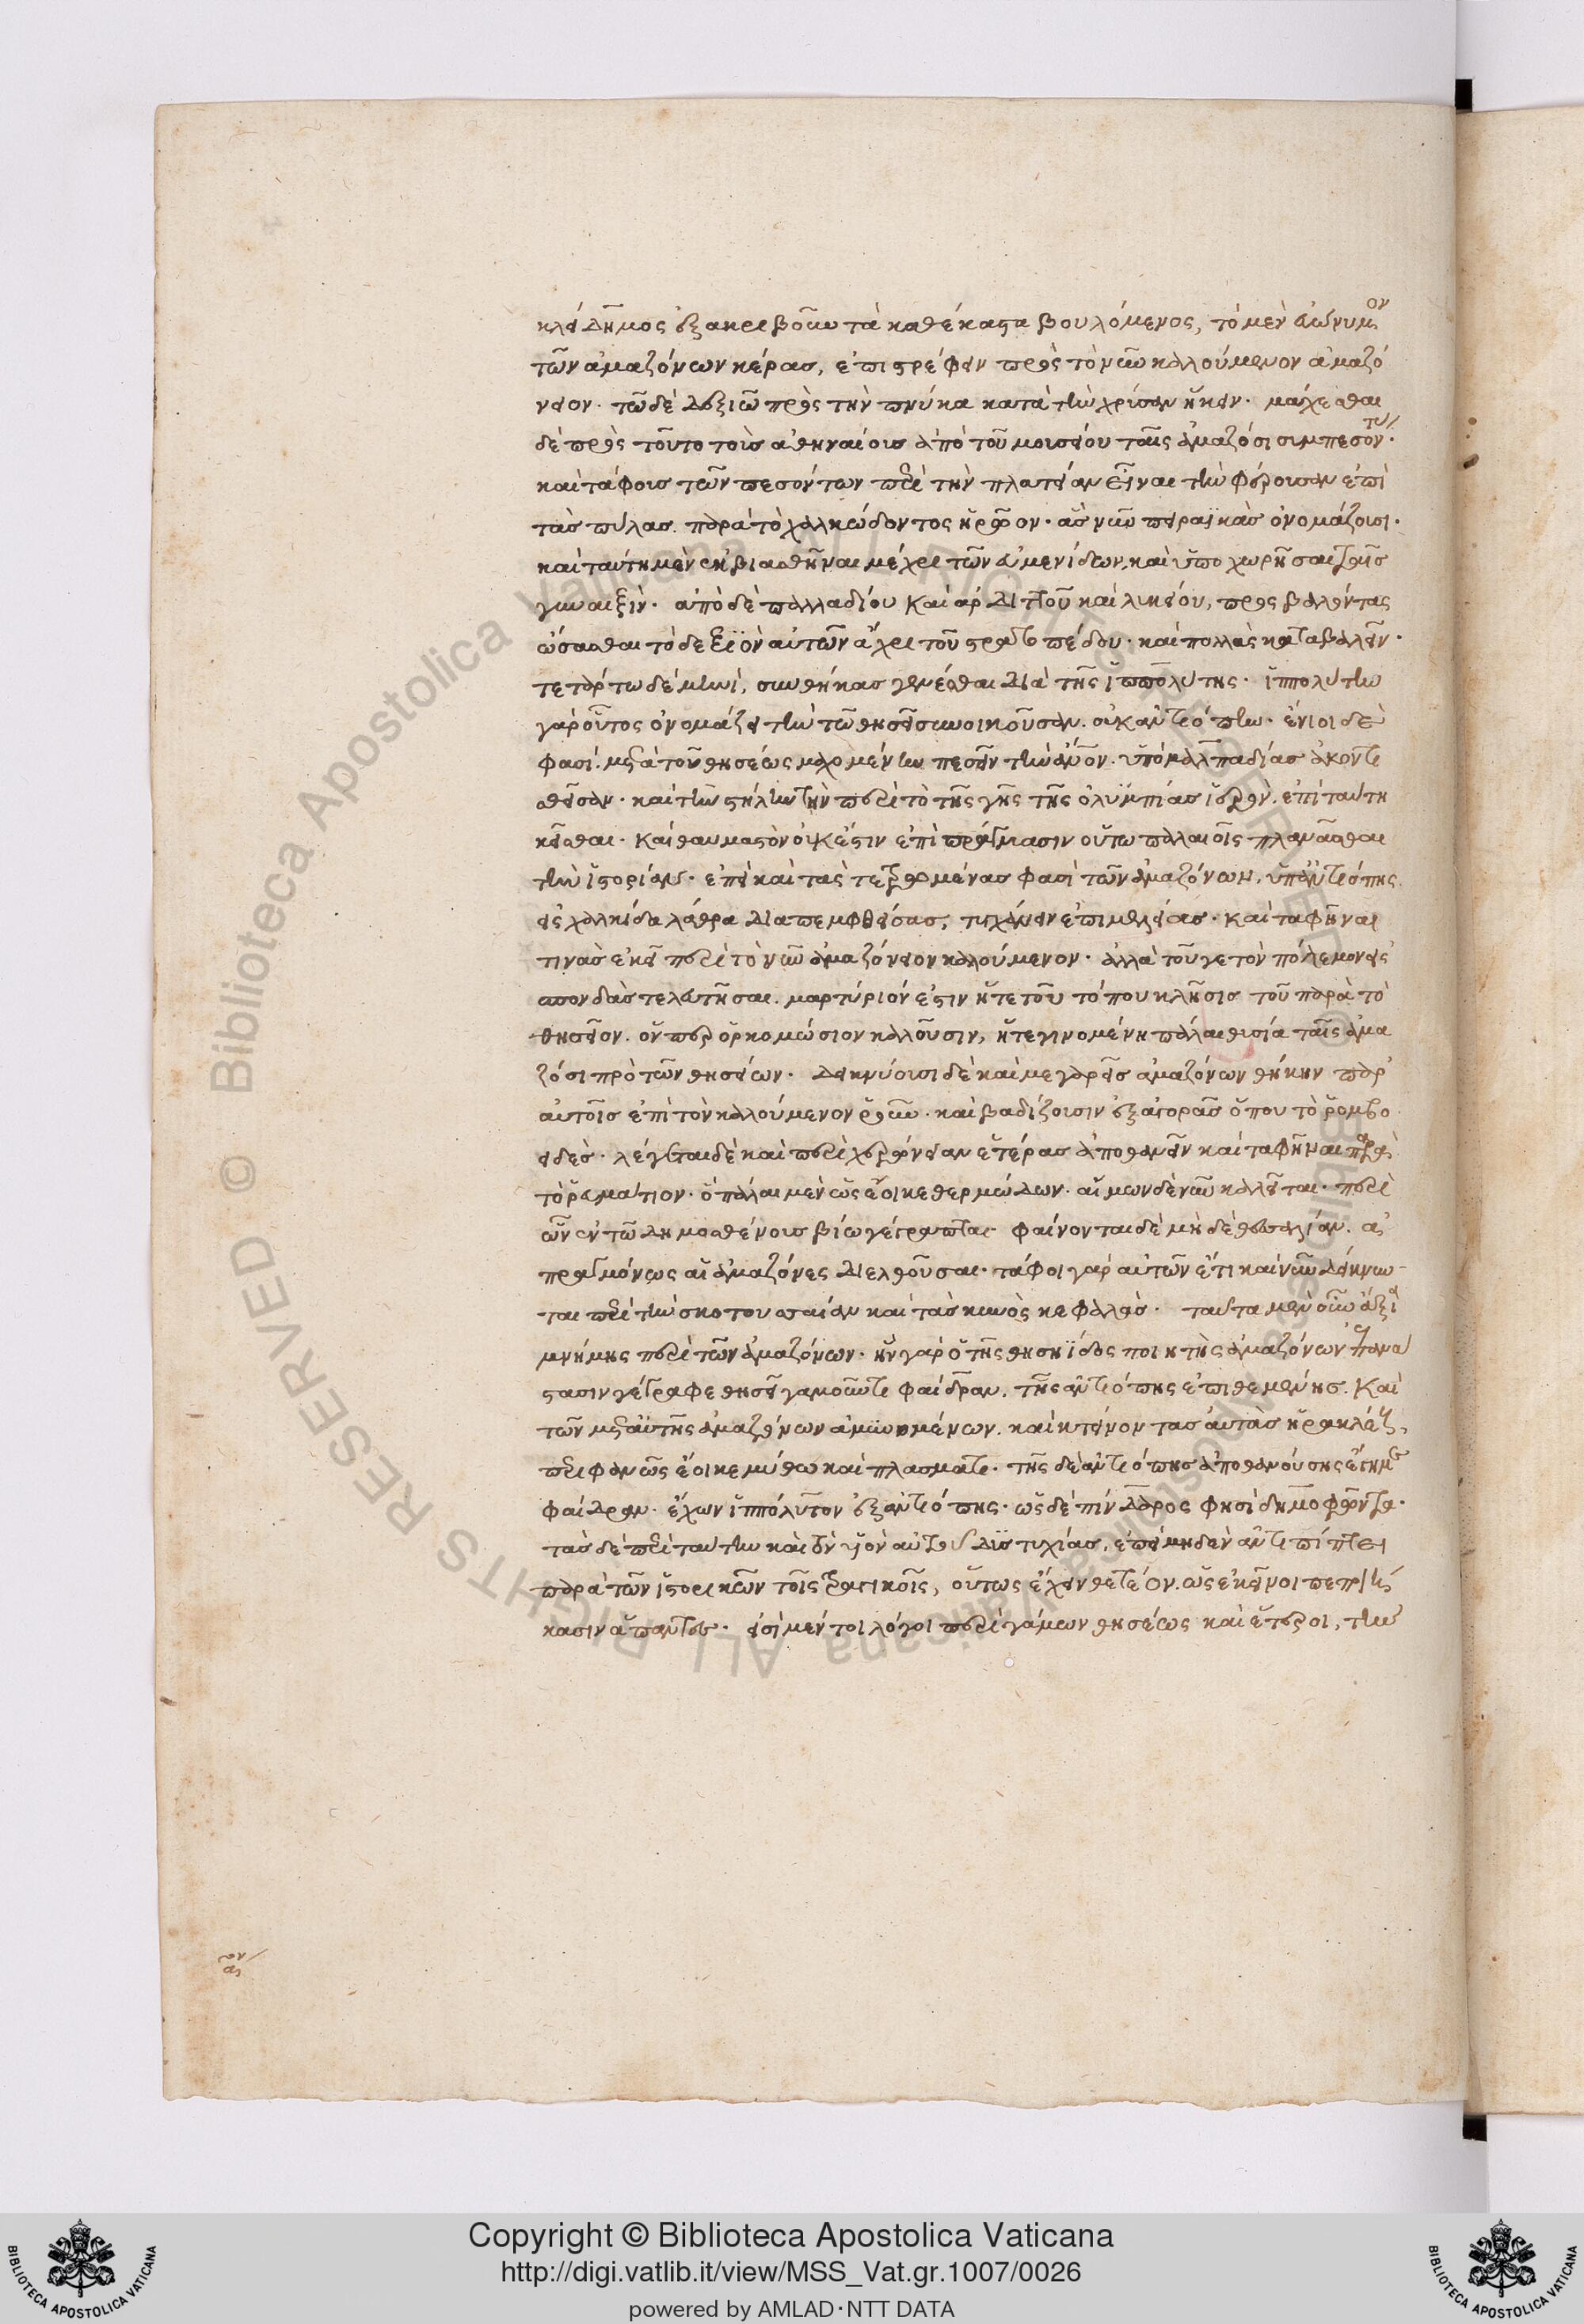 κλείδημος ἐξακριβοῦν τὰ καθέκαστα βουλόμενος, τὸ μὲν εὐώνυμον
τῶν ἀμαζόνων κέρας, ἐπιστρέφειν πρὸς τὸ νῦν καλούμενον ἀμαζό
νειον. τῶ δὲ δεξιῶ πρὸς τὴν πνύκα κατὰ τὴν χρύσαν ἥκειν. μάχεσθαι
δὲ πρὸς τοῦτο τοὺς ἀθηναίους ἀπὸ τοῦ μουσείου ταῖς ἀμαζόσι συμπεσόντας.
καὶ τάφους τῶν πεσόντων περὶ τὴν πλατεῖαν εἶναι τὴν φέρουσαν ἐπὶ
τὰς πύλας παρὰ τὸ χαλκώδοντος ἡρῶον. ἃς νῦν πειραϊκὰς ὀνομάζουσι.
καὶ ταύτη μὲν ἐκβιασθῆναι μέχρι τῶν εὐμενίδων, καὶ ὑποχωρῆσαι ταῖς
γυναιξὶν. ἀπὸ δὲ παλλαδίου καὶ ἀρδηττοῦ καὶ λυκείου, προσβαλόντας
ὤσασθαι τὸ δεξιὸν αὐτῶν ἄχρι τοῦ στρατοπέδου. καὶ πολλὰς καταβαλεῖν.
τετάρτω δὲ μηνὶ, συνθήκας γενέσθαι διὰ τῆς ἱππολύτης. ἱππολύτην
γὰρ οὗτος ὀνομάζει τὴν τῶ θησεῖ συνοικοῦσαν. οὐκ ἀντιόπην. ἔνιοι δὲ
φασὶ. μετὰ τοῦ θησέως μαχομένην πεσεῖν τὴν ἄνθρωπον. ὑπὸ μολπαδίας ἀκοντι
σθεῖσαν. καὶ τὴν στήλην τὴν περὶ τὸ τῆς γῆς τῆς ὀλυμπίας ἱερὸν, ἐπὶ ταύτη
κεῖσθαι. καὶ θαυμαστὸν οὐκ ἔστιν ἐπὶ πράγμασιν οὕτω παλαιοῖς πλανᾶσθαι
τὴν ἱστορίαν. ἐπεὶ καὶ τὰς τετρωμένας φασὶ τῶν ἀμαζόνων, ὑπ' ἀντιόπης
εἰς χαλκίδα λάθρα διαπεμφθείσας, τυχάνειν ἐπιμελείας. καὶ ταφῆναι
τινὰς ἐκεῖ περὶ τὸ νῦν ἀμαζόνειον καλούμενον. ἀλλὰ τοῦ γε τὸν πόλεμον εἰς
σπονδὰς τελευτῆσαι. μαρτύριόν ἐστιν ἥ τε τοῦ τόπου κλῆσις τοῦ παρὰ τὸ
θησεῖον. οὗπερ ὁρκομώσιον καλοῦσιν, ἥ τε γινομένη πάλαι θυσία ταῖς ἀμα
ζόσι πρὸ τῶν θησείων. δεικνύουσι δὲ καὶ μεγαρεῖς ἀμαζόνων θήκην παρ'
αὐτοῖς ἐπὶ τὸν καλούμενον ῥοῦν. καὶ βαδίζουσιν ἐξ ἀγορᾶς ὅπου τὸ ῥομβο
ειδές. λέγεται δὲ καὶ περὶ χερώνειαν ἑτέρας ἀποθανεῖν καὶ ταφῆναι παρὰ
τὸ ῥευμάτιον. ὃ πάλαι μὲν ὡς ἔοικε θερμώδων. αἵμων δὲ νῦν καλεῖται. περὶ
ὧν ἐν τῶ δημοσθένους βίω γέγραπται. φαίνονται δὲ μὴ δὲ θεσσαλίαν. ἀ
πραγμόνως αἱ ἀμαζόνες διελθοῦσαι. τάφοι γὰρ αὐτῶν ἔτι καὶ νῦν δείκνυν
ται περὶ τὴν σκοτουσαίαν καὶ τὰς κυνὸς κεφαλάς. ταῦτα μὲν οὖν ἄξια
μνήμης περὶ τῶν ἀμαζόνων. ἣν γὰρ ὁ τῆς θησηΐδος ποιητὴς ἀμαζόνων ἐπανά
στασιν γέγραφε θησεῖ γαμοῦντι φαίδραν, τῆς ἀντιόπης ἐπιθεμένης. καὶ
τῶν μετ' αὐτῆς ἀμαζόνων ἀμυνομένων. καὶ κτείνοντας αὐτὰς ἡρακλέους,
περιφανῶς ἔοικε μύθω καὶ πλάσματι. τῆς δὲ ἀντιόπης ἀποθανούσης ἔγημε
φαίδραν. ἔχων ἱππόλυτον ἐξ ἀντιόπης. ὡς δὲ πίνδαρος φησὶ δημοφῶντα.
τὰς δὲ περὶ ταύτην καὶ τὸν υἱὸν αὐτοῦ δυστυχίας, ἐπεὶ μηδὲν ἀντιπίπτει
παρὰ τῶν ἱστορικῶν τοῖς τραγικοῖς, οὕτως ἔχειν θετέον. ὡς ἐκεῖνοι πεποιή
κασιν ἅπαντες. εἰσὶ μέντοι λόγοι περὶ γάμων θησέως καὶ ἕτεροι, τὴν
Copyright © Biblioteca Apostolica Vaticana
http://digi.vatlib.it/view/MSS_Vat.gr.1007/0026
powered by AMLAD·NTT DATA